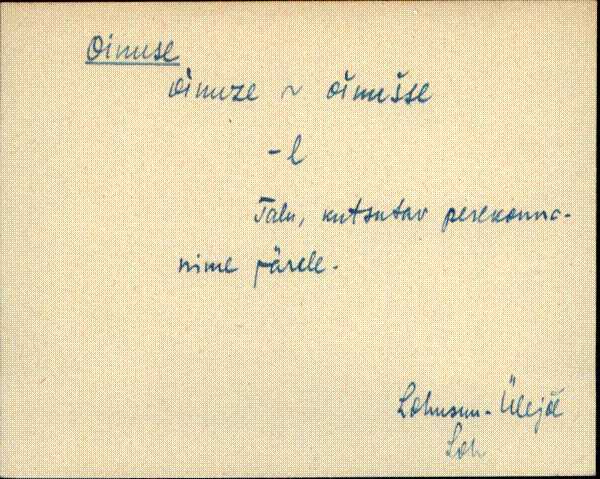 Oinuse
oinuze ~ oimušse
-l
Talu, kutsutav perekonna-
nime järele.
Lohusuu - Ülejõe
Loh